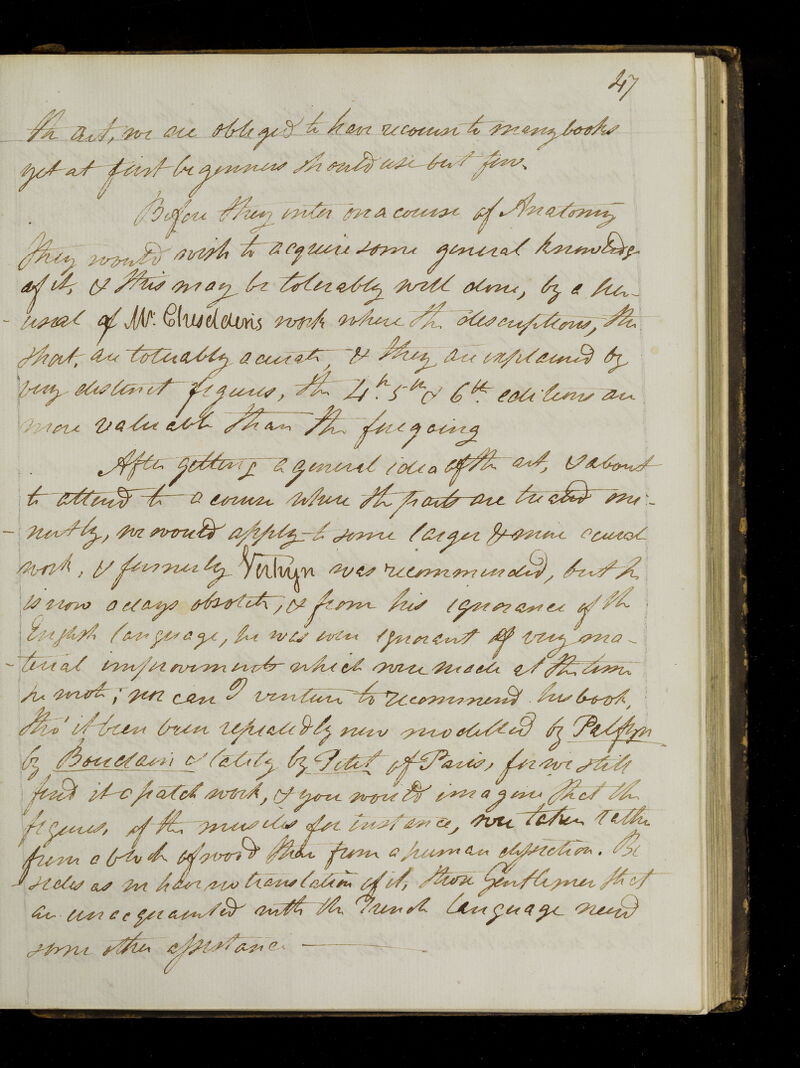 47
the art, we are obliged to have recourse to many books
yet at first beginners should use but few.
Before they enter on a course of Anatomy
they would wish to acquire some general knowledge
of it, & this may be tolerably well done, by a per-
usual of Mr. Cheseldens work where the descriptions, tho
short, are tolerably acurate, & they are explained by
very distinct figures, the 4th. 5th & 6th. editions are
more valuable than the foregoing
After getting a general idea of the art, & about
to attend to a course where the parts are treated mi-
nutly, we would apply to some larger & more acurat
work, & formerly Verhyn was recommended, but he
is now adays obsolete, & from his ignorance of the
English language, he was even ignorant of very ma-
terial improvements which were made at the time
he wrote; nor can I venture to recommend his book,
tho' it been been repeatedly new modelled by Palfyn
by Boudain & lately by Petit of Paris, for we still
find it a patch work, & you would imagine that the
figures, of the muscles for instance, were taken rather
from a block of wood than from a human dissection. Be
sides as we have no translation of it, those Gentlemen that
are unacquainted with the French language need
some other assistance